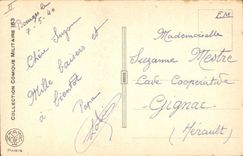 II
7-5-40
F.M
Chère Suzon
Mille baisers et
à bientôt
Papa
Mademoiselle
Suzanne Mestre
Cave Coopérative
Gignac
(Hérault)
COLLECTION COMIQUE MILITAIRE 183
PARIS